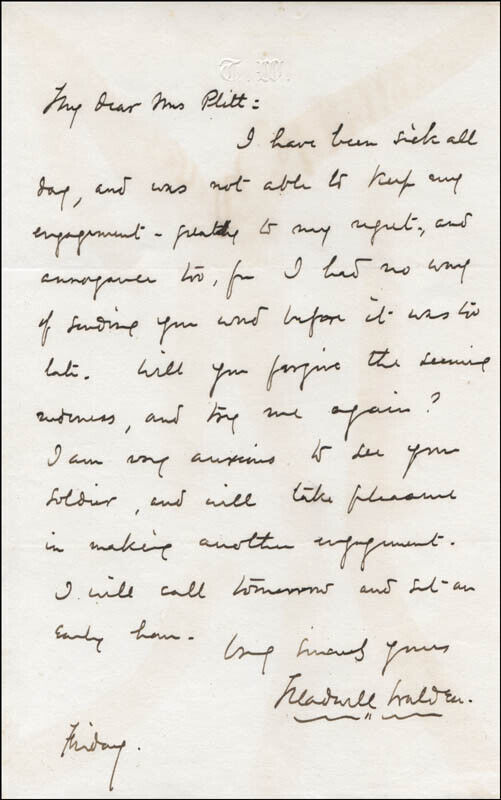 T. W.
My dear Mrs Plitt:
I have been sick all
day, and was not able to keep my
engagement - greatly to my regret, and
annoyance too, for I had no way
of sending you word before it was too
late. Will you forgive the seeming
rudeness, and try me again?
I am very anxious to see your
soldier, and will take pleasure
in making another engagement.
I will call tomorrow and set an
early hour.
Very sincerely yours
Treadwell Walden.
Friday.